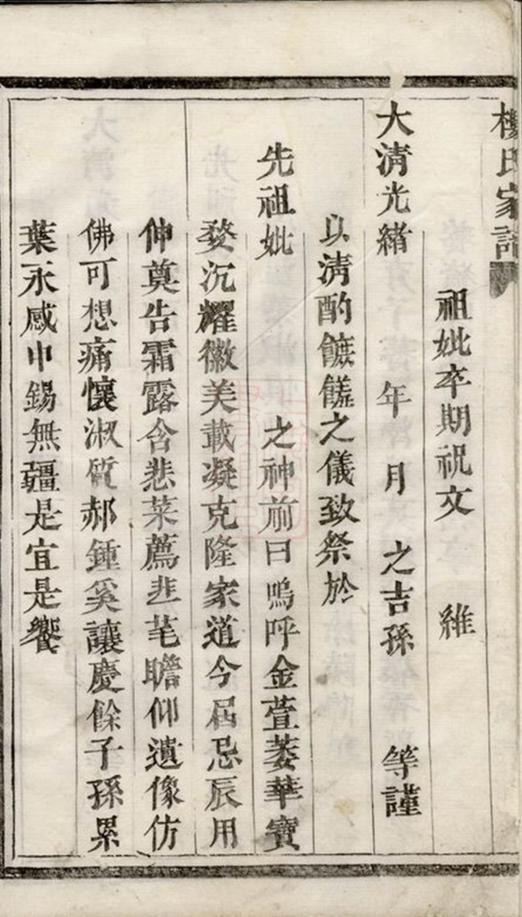 樓氏家譜
祖妣卒期祝文 維
大清光緒 年 月 之吉孫 等謹
以清酌饈饈之儀致祭於
先祖妣 之神前曰嗚呼金萱萎華寶
婺沉耀徽美載凝克隆家道今屆忌辰用
伸奠告霜露含悲菜薦韭芼瞻仰遺像仿
佛可想痛懷淑質郝鍾奚讓慶餘子孫累
葉永感申錫無疆是宜是饗